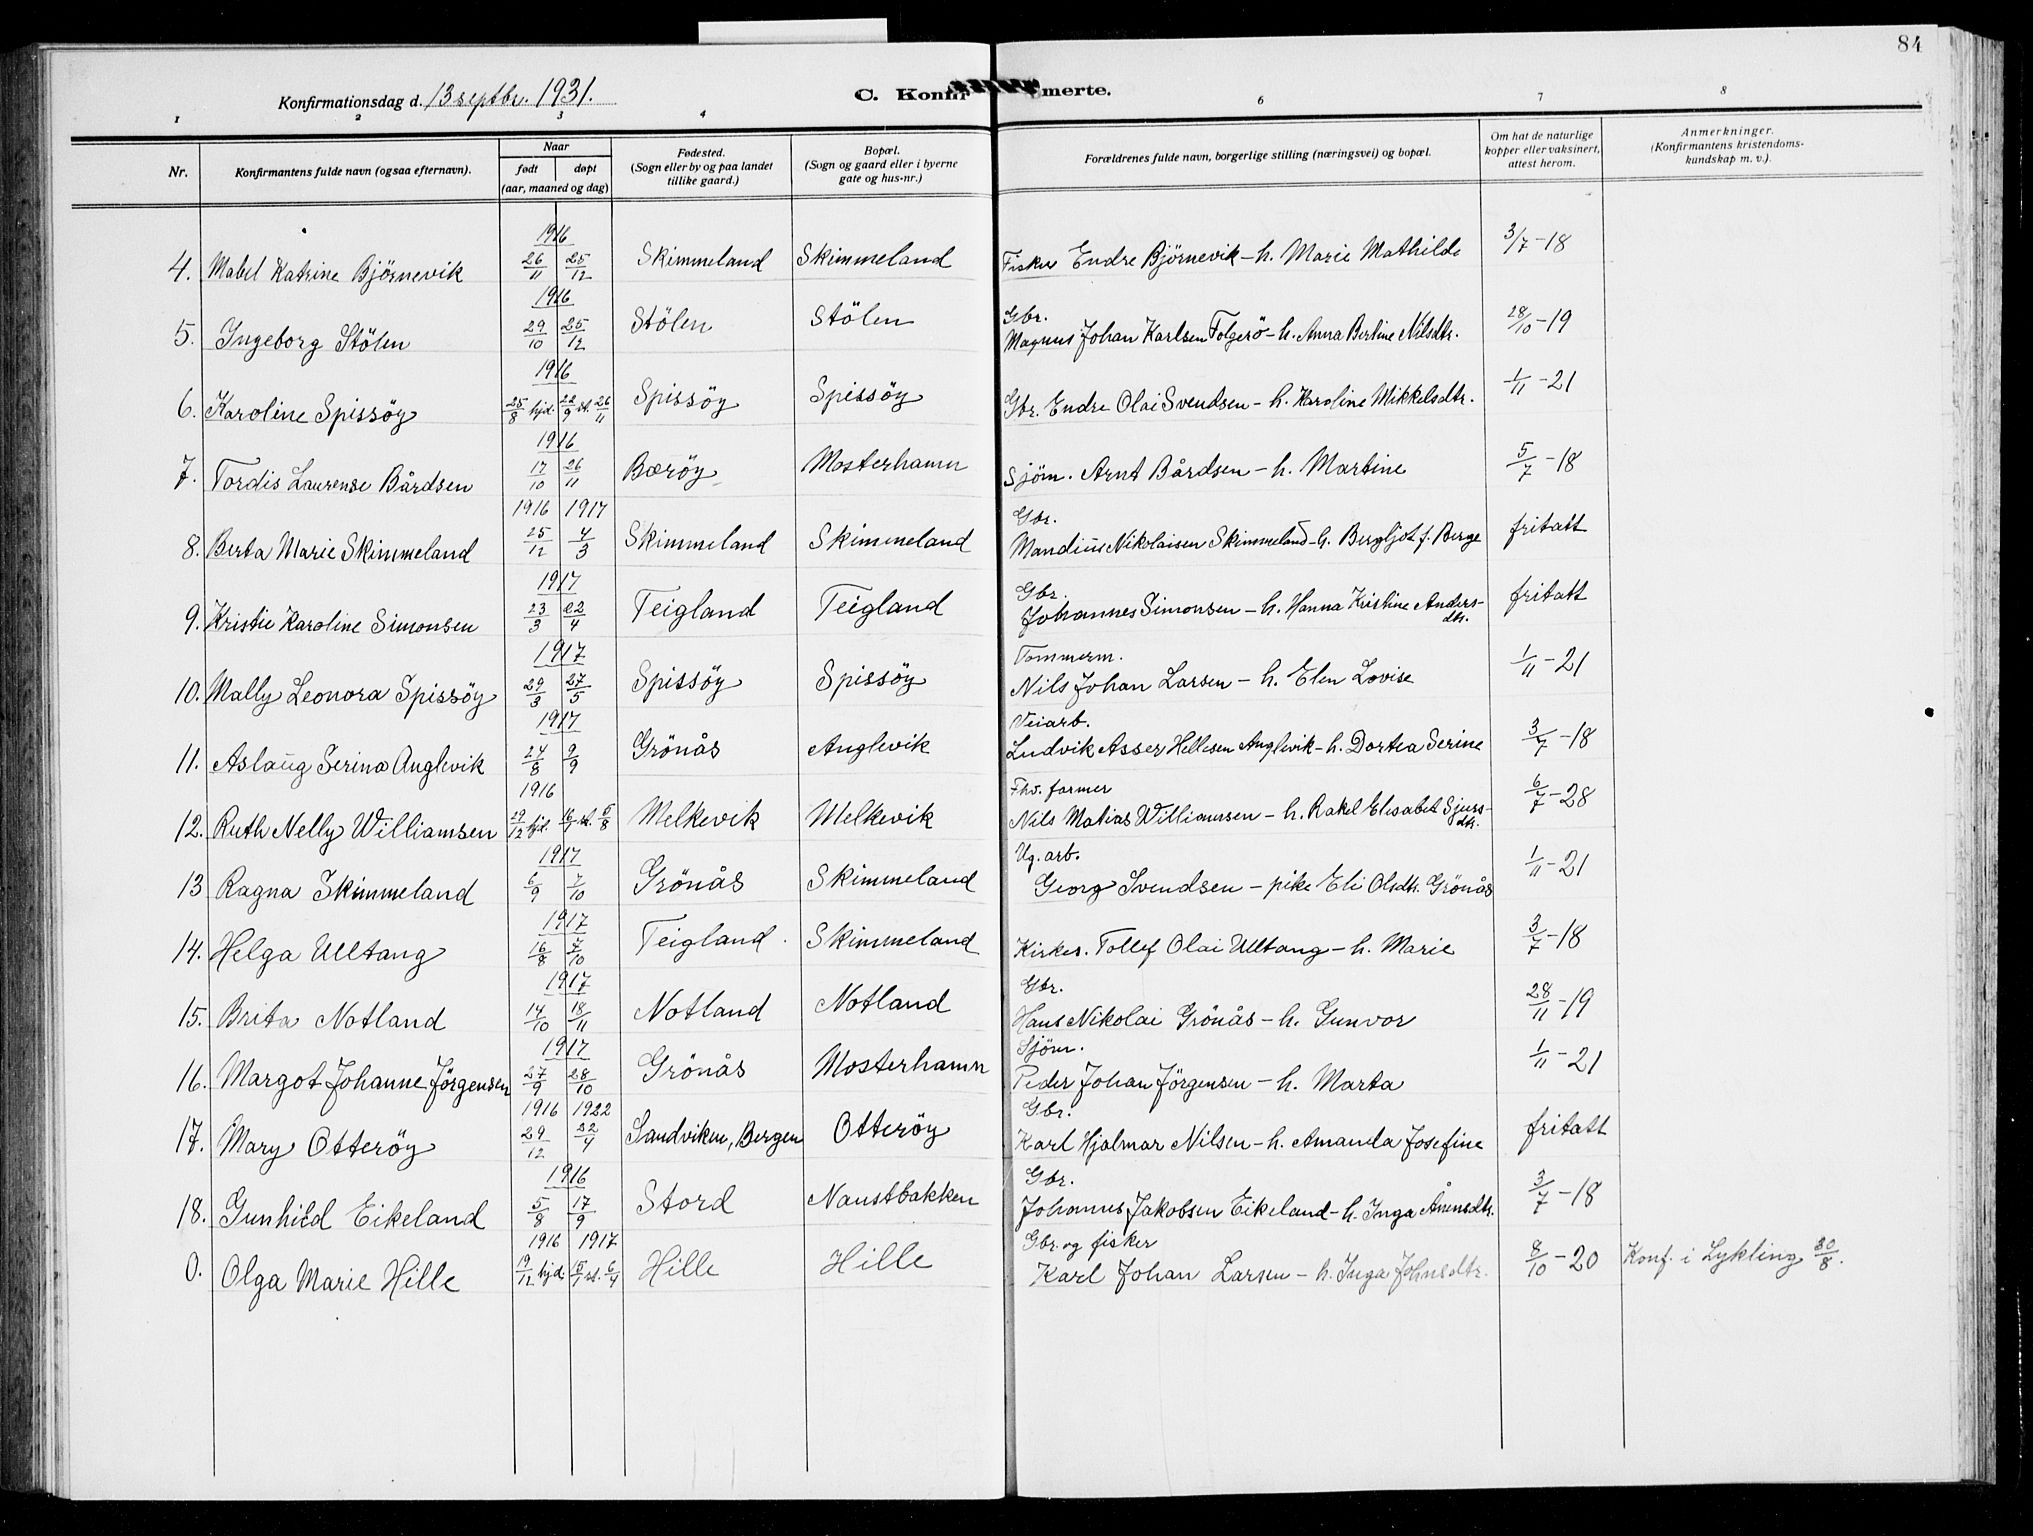 84
Konfirmationsdag d. 13 septbr. 1931.
C. Konfir merte.
1 2 3 4 6 7 8
Nr. | Konfirmantens fulde navn (ogsaa efternavn). | Naar født døpt (aar, maaned og dag) | Fødested. (Sogn eller by og paa landet tillike gaard.) | Bopæl. (Sogn og gaard eller i byerne gate og hus-nr.) | Forældrenes fulde navn, borgerlige stilling (næringsvei) og bopæl. | Om hat de naturlige kopper eller vaksinert, attest herom. | Anmerkninger. (Konfirmantens kristendoms-kundskap m. v.).
4. Mabel Katrine Björnevik 1916 26/11 25/12 Skimmeland Skimmeland Fisker Endre Björnevik - h. Marie Mathilde 3/7-18
5. Ingeborg Stölen 1916 29/10 25/12 Stölen Stölen Gbr. Magnus Johan Karlsen Folgerö - h. Anna Bertine Nilsdtr. 28/10-19
6. Karoline Spissöy 1916 25/8 hjd. 22/9 st. 26/11 Spissöy Spissöy Gbr. Endre Olai Svendsen - h. Karoline Mikkelsdtr. 1/11-21
7. Tordis Laurense Bårdsen 1916 17/10 26/11 Bæröy Mosterhamn Sjöm. Arnt Bårdsen - h. Martine 5/7-18
8. Berta Marie Skimmeland 1916 1917 25/12 4/3 Skimmeland Skimmeland Gbr. Mandius Nikolaisen Skimmeland - h. Bergljot f. Berge fritatt
9. Kristie Karoline Simonsen 1917 23/3 22/4 Teigland Teigland Gbr. Johannes Simonsen - h. Hanna Kristine Anders-dtr. fritatt
10. Mally Leonora Spissöy 1917 29/3 27/5 Spissöy Spissöy Tommerm. Nils Johan Larsen - h. Elen Lovise 1/11-21
11. Aslaug Serina Anglevik 1917 24/8 9/9 Grönås Anglevik Veiarb. Ludvik Asser Hellesen Anglevik - h. Dortea Serine 3/7-18
12. Ruth Nelly Williamsen 1916 29/12 hjd. st. 5/8 Melkevik Melkevik Fhv. farmer Nils Matias Williamsen - h. Rakel Elisabet Sjurs-dtr. 6/7-28
13 Ragna Skimmeland 1917 6/9 7/10 Grönås Skimmeland Ug. arb. Georg Svendsen - pike Eli Olsdtr. Grönås 1/11-21
14. Helga Ulltang 1917 16/8 7/10 Teigland. Skimmeland Kirkes. Tollef Olai Ulltang - h. Marie 3/7-18
15. Brita Notland 1917 14/10 18/11 Notland Notland Gbr. Hans Nikolai Grönås - h. Gunvor 28/11-19
16. Margot Johanne Jörgensen 1917 27/9 28/10 Grönås Mosterhamn Sjöm. Peder Johan Jörgensen - h. Marta 1/11-21
17. Mary Otteröy 1916 1922 29/12 22/4 Sandviken, Bergen Otteröy Gbr. Karl Hjalmar Nilsen - h. Amanda Josefine fritatt
18. Gunhild Eikeland 1916 5/8 17/9 Stord Naustbakken Gbr. Johannes Jakobsen Eikeland - h. Inga Ånensdtr. 3/7-18
0. Olga Marie Hille 1916 1917 19/12 hjd. st. 6/4 Hille Hille Gbr. og fisker Karl Johan Larsen - h. Inga Johnsdtr. 8/10-20 Konf. i Lykling 30/8.